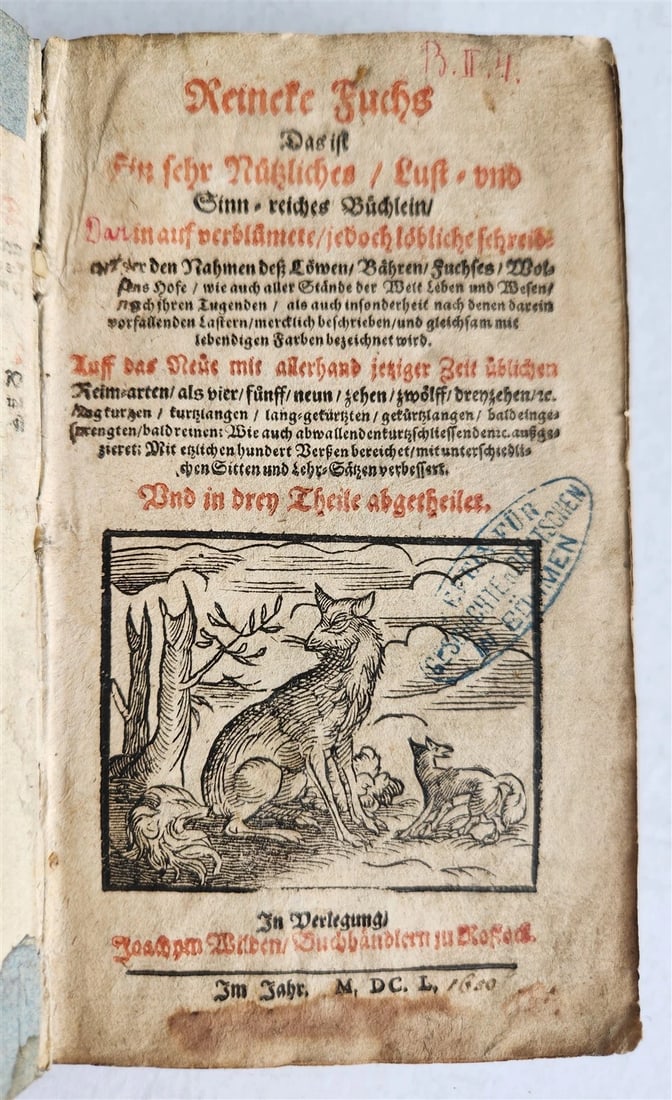 B. II. 4.
Reineke Fuchs
Das ist
Ein sehr Nützliches / Lust- vnd
Sinn-reiches Büchlein/
Darin auf verblümete/jedoch löbliche schreib-
den Nahmen deß Löwen/ Bähren/ Fuchses/ Wol-
Hofe / wie auch aller Stände der Welt Leben und Wesen/
nach ihren Tugenden / als auch insonderheit nach denen darein
vorfallenden Lastern/mercklich beschrieben/und gleichsam mit
lebendigen Farben bezeichnet wird.
Auff das Neüe mit allerhand jetziger Zeit üblichen
Reim-arten/ als vier/ fünff/ neun/ zehen/ zwölff/ dreyzehen/ꝛc.
kurtzlangen / lang-gekürtzten/ gekürtzlangen/ bald einge-
sprengten/bald reinen: Wie auch abwallenden kurtzschliessenden ꝛc. außge-
zieret: Mit etzlichen hundert Verßen bereichet/mit unterschiedli-
chen Sitten und Lehr-Sätzen verbessert.
Und in drey Theile abgetheilet.
VEREIN FÜR
GESCHICHTE D. DEUTSCHEN
IN BÖHMEN
In Verlegung/
Joachym Wilden/ Buchhändlern zu Rostock.
Im Jahr. M. DC. L. 1650